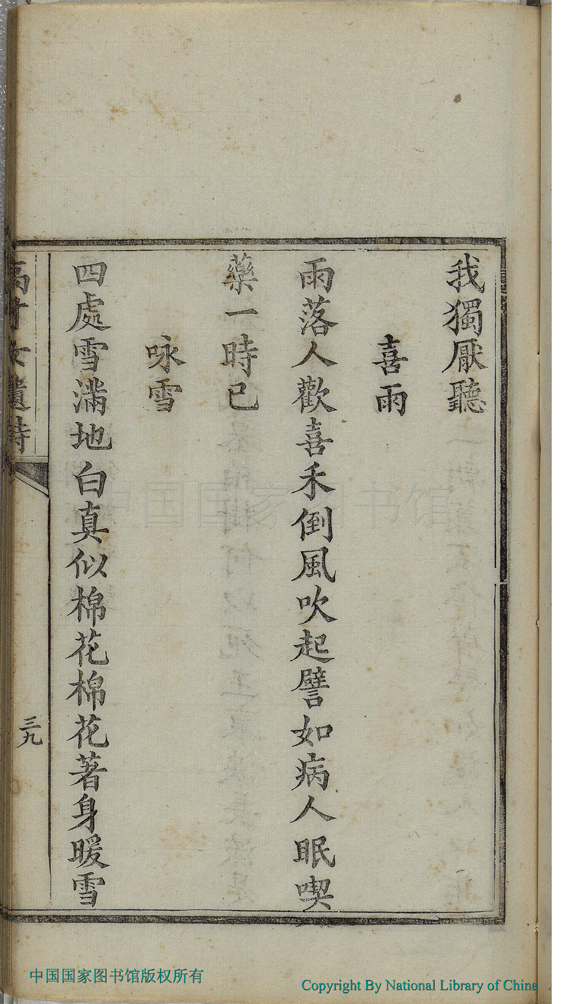 我獨厭聽
喜雨
雨落人歡喜禾倒風吹起譬如病人眠喫
藥一時已
咏雪
四處雪滿地白真似棉花棉花著身暖雪
高才女遺詩
三九
中国国家图书馆
中国国家图书馆版权所有
Copyright By National Library of China